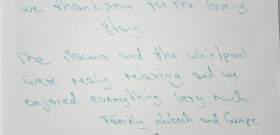 we thank you for the lovely
stay.
The sauna and the whirlpool
were realy relaxing and we
enjoied everything very much
Family and